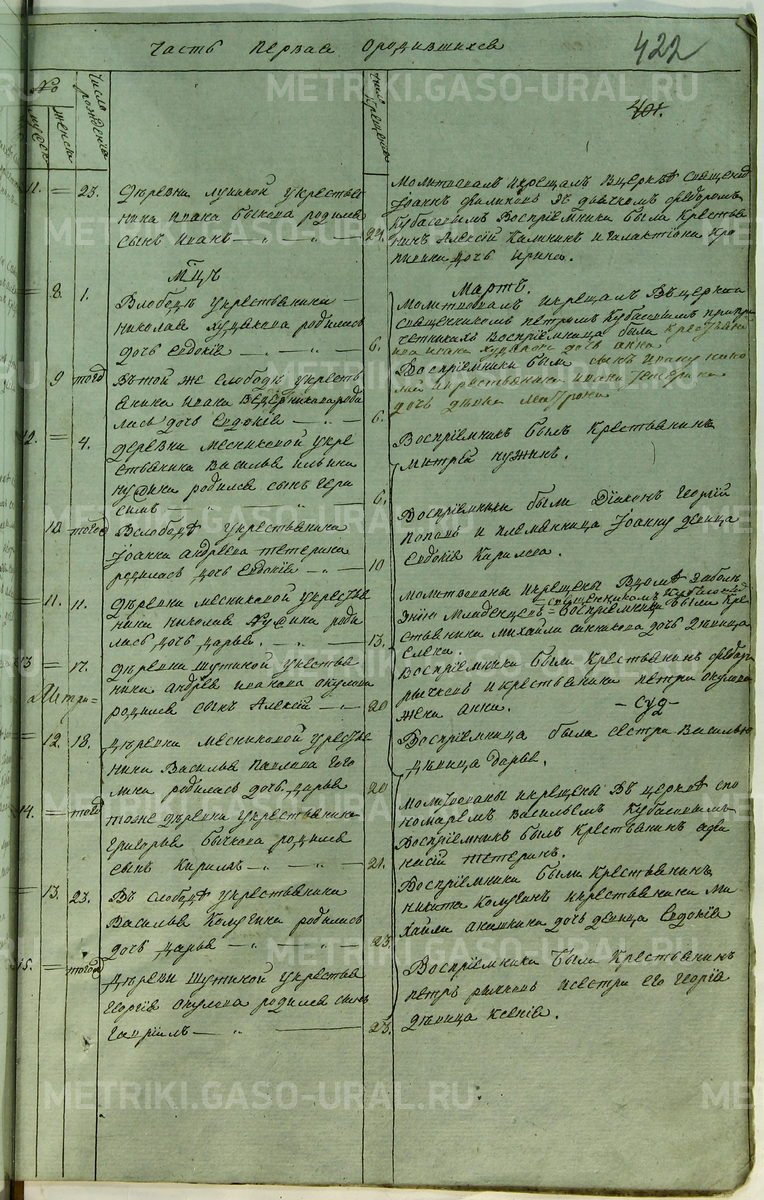 Часть первая о родившихся
422
401.
№
мужск
женск
Число рождения
Число крещения
11. = 23. Деревни Луниной у крестья
нина Ивана Бычкова родился
сынъ Иванъ
29.
Молитвовалъ и крещалъ в церкве священ
Іоаннъ Филиповъ з дьячкомъ Федоромъ
Кубасовымъ Воспріемники была Кресть
нинъ Алексій Калининъ и Галактіона
дочь Ирина.
мцъ
Мартъ.
= 8. 1. В слободе у крестьянина
Николая Худякова родилась
дочь Евдокія
6.
Молитвовалъ и крещалъ въ церкви
священникомъ Петромъ Кубасовымъ при
четникахъ Воспріемница была крестьяни
на Ивана Худякова дочь Анна.
= 9 тогод Въ той же слободе у кресть
янина Ивана Ведерникова роди
лась дочь Евдокія
6.
Воспріемники были сынъ Ивану
крестьянина Ивана Тетерина
дочь девка Матрона
12. = 4. Деревни Месниковой у кре
стьянина Василья Ильина
Пужина родился сынъ Гера
симъ
6.
Воспріемникъ былъ Крестьянинъ
Митрей Пужинъ.
10. тогод В слободе у крестьянина
Іоанна Андреева Тетерина
родилась дочь Евдокія
10
Воспріемники были Діаконъ Георгій
Поповъ и племянница Іоанну девица
Евдокія Кирилова.
= 11. 11. Деревни Месниковой у крестья
нина Николая Пужина роди
лась дочь Дарья.
13.
Молитвованы и крещены в доме за боле
знію младенцевъ священникомъ
Воспріемница была кре
стьянина Михайла Санникова дочь девица
Елена.
13 = 17. Деревни Шутиной у крестья
нина Андрея Иванова Окулова
родился сынъ Алексій
20
Воспріемники были Крестьянинъ Федоръ
Рычковъ и крестьянина Петра Окулова
жена Анна.
Метри=
-суд-
= 12. 18. Деревни Месниковой у крестья
нина Василья Павлова Гого
лина родилась дочь Дарья
20
Воспріемница была сестра Василью
девица Дарья.
14. = тогод Тоже деревни у крестьянина
Григорья Бычкова родился
сынъ Кирилъ
21.
Молитвованы и крещены въ церкве спо
номаремъ Васильемъ Кубасовымъ
Воспріемникъ былъ Крестьянинъ Афа
насій Тетеринъ.
= 13. 23. Въ слободе у крестьянина
Василья Колугина родилась
дочь Дарья
23.
Воспріемники были Крестьянинъ
Никита Колугинъ и крестьянина Ми
хайла Аникина дочь девица Евдокія
15. = тогод Деревни Шутиной у крестья
Георгія Окулова родился сынъ
Гавріилъ
23.
Воспріемники были Крестьянинъ
Петръ Рычковъ и сестра его Георгія
девица Ксенія.
METRIKI.GASO-URAL.RU